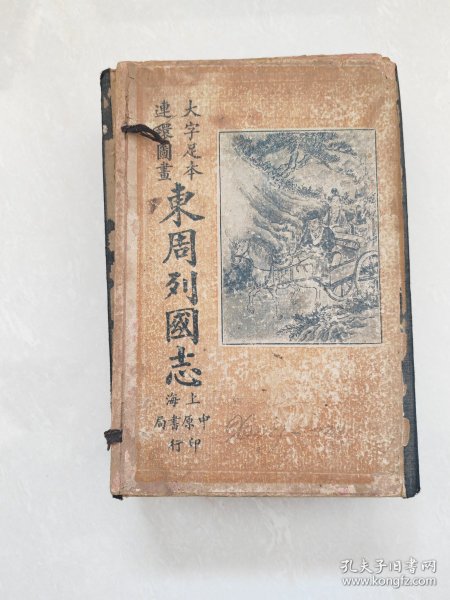 大字足本
連環圖畫
東周列國志
上海
中原書局
印行
孔夫子旧书网
www.kongfz.com